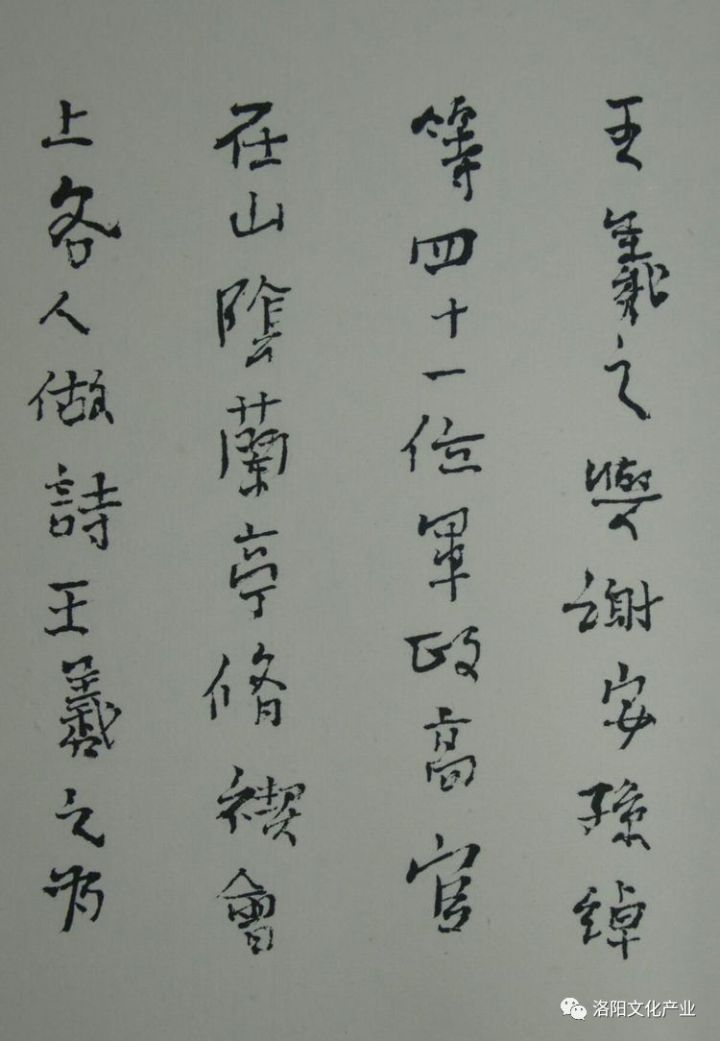 王羲之與謝安孫綽
等四十一位軍政高官
在山陰蘭亭脩禊會
上各人做詩王羲之為
洛阳文化产业